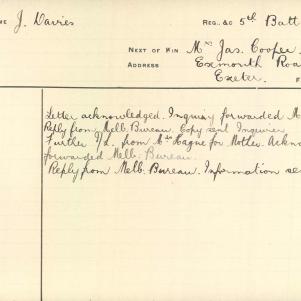 ME J. Davies REG. &c 5th Batt
NEXT OF KIN Mrs Jas. Cooper.
ADDRESS Exmouth Roa
Exeter. F
Letter acknowledged. Inquiry forwarded M
Reply from Melb. Bureau. Copy sent Inquirer
Further I/L. from Mrs Hague for Mother. Ackno
forwarded Melb. Bureau.
Reply from Melb. Bureau. Information se